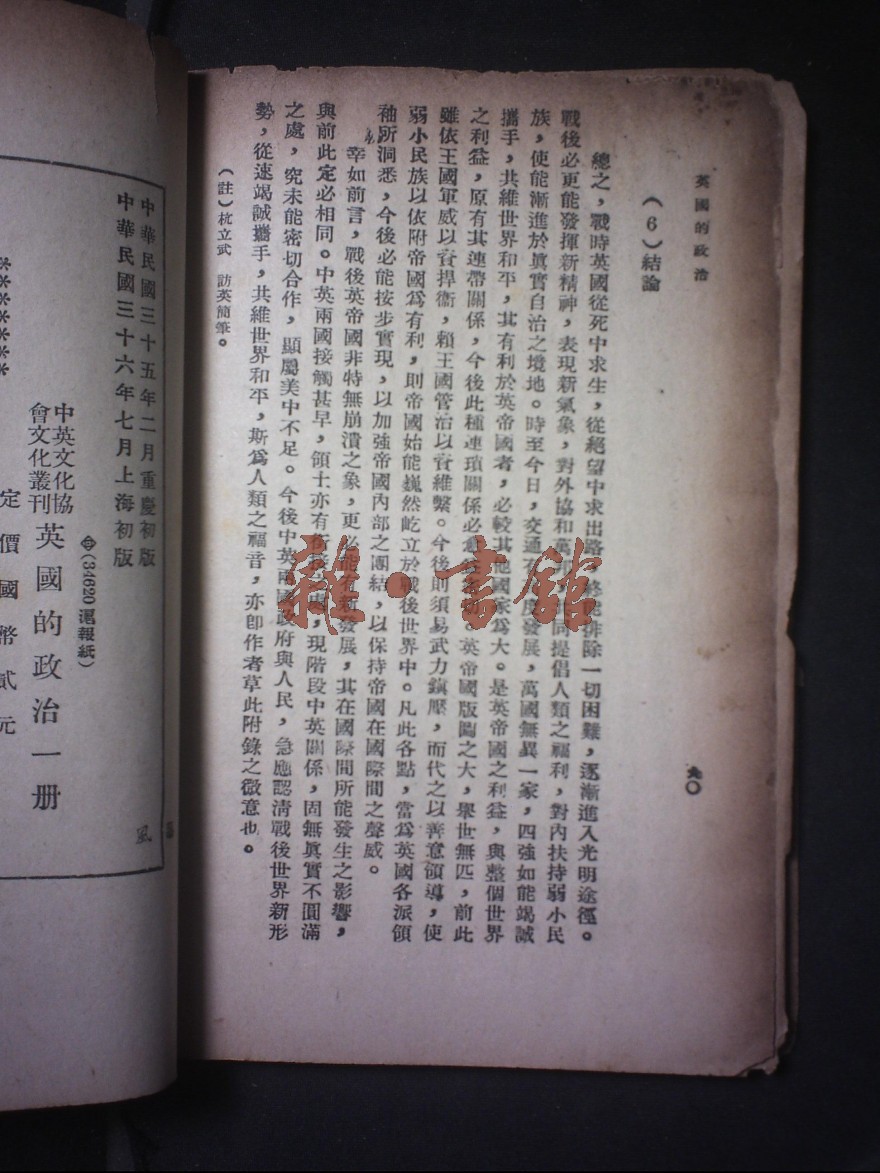 英國的政治
九〇
（6）結論
總之，戰時英國從死中求生，從絕望中求出路，終能排除一切困難，逐漸進入光明途徑。
戰後必更能發揮新精神，表現新氣象，對外協和萬邦，同提倡人類之福利，對內扶持弱小民
族，使能漸進於眞實自治之境地。時至今日，交通有度發展，萬國無異一家，四強如能竭誠
攜手，共維世界和平，其有利於英帝國者，必較其他國家爲大。是英帝國之利益，與整個世界
之利益，原有其連帶關係，今後此種連瑣關係必。英帝國版圖之大，舉世無匹，前此
雖依王國軍威以資捍衛，賴王國管治以資維繫。今後則須易武力鎭壓，而代之以善意領導，使
弱小民族以依附帝國爲有利，則帝國始能巍然屹立於戰後世界中。凡此各點，當爲英國各派領
袖所洞悉，今後必能按步實現，以加強帝國內部之團結，以保持帝國在國際間之聲威。
幸如前言，戰後英帝國非特無崩潰之象，更必能有新發展，其在國際間所能發生之影響，
與前此定必相同。中英兩國接觸甚早，領土亦有銜接之處，現階段中英關係，固無眞實不圓滿
之處，究未能密切合作，顯屬美中不足。今後中英兩國政府與人民，急應認淸戰後世界新形
勢，從速竭誠攜手，共維世界和平，斯爲人類之福音，亦卽作者草此附錄之微意也。
（註）杭立武 訪英簡筆。
中華民國三十五年二月重慶初版
中華民國三十六年七月上海初版
(34620滬報紙)
中英文化協
會文化叢刊
英國的政治一册
定價國幣貳元
＊＊＊＊＊＊
風
雜·書館